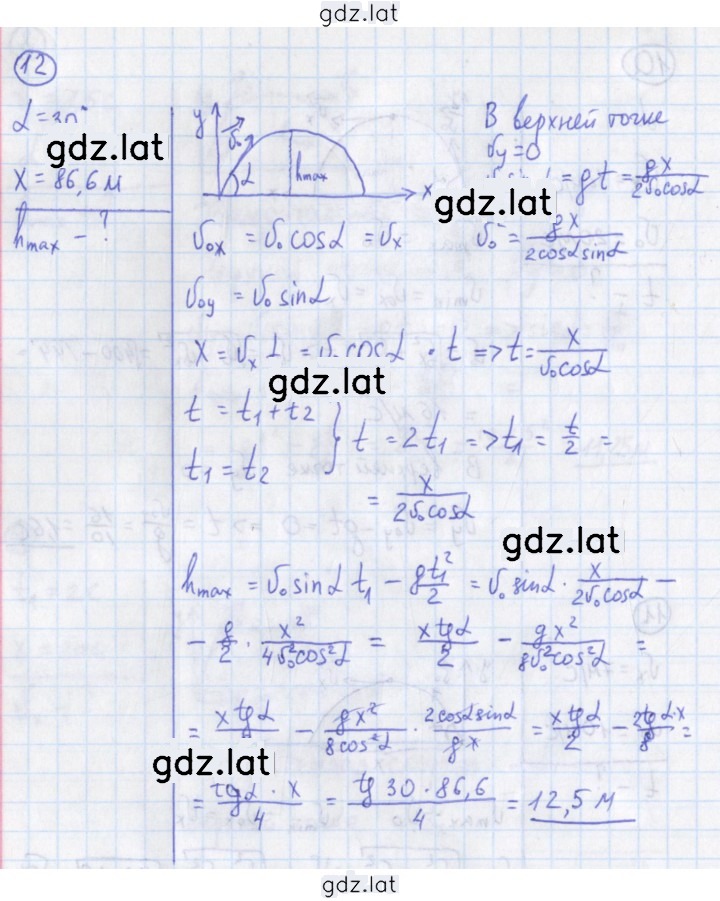 gdz.lat
12
α = 30°
gdz.lat
x = 86,6 м
hmax - ?
y v₀ α hmax x
В верхней точке
vy = 0
= gt = gx/(2v₀cosα)
gdz.lat
v₀² = gx/(2cosα sinα)
v₀x = v₀ cosα = vx
v₀y = v₀ sinα
x = vx t = v₀ cosα · t => t = x/(v₀cosα)
gdz.lat
t = t₁ + t₂
t₁ = t₂ } t = 2t₁ => t₁ = t/2 =
= x/(2v₀cosα)
gdz.lat
hmax = v₀ sinα t₁ - gt₁²/2 = v₀ sinα · x/(2v₀cosα) -
- g/2 · x²/(4v₀²cos²α) = x tgα/2 - gx²/(8v₀²cos²α) =
= x tgα/2 - gx²/(8cos²α) · 2cosα sinα/(gx) = x tgα/2 - 2tgα·x/8 =
gdz.lat
= tgα · x/4 = tg 30 · 86,6/4 = 12,5 м
gdz.lat